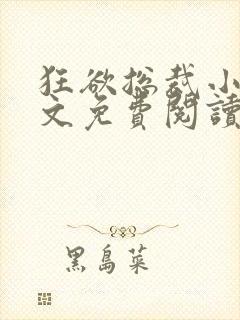 狂欲总裁小
文免費閱讀
黑島菜